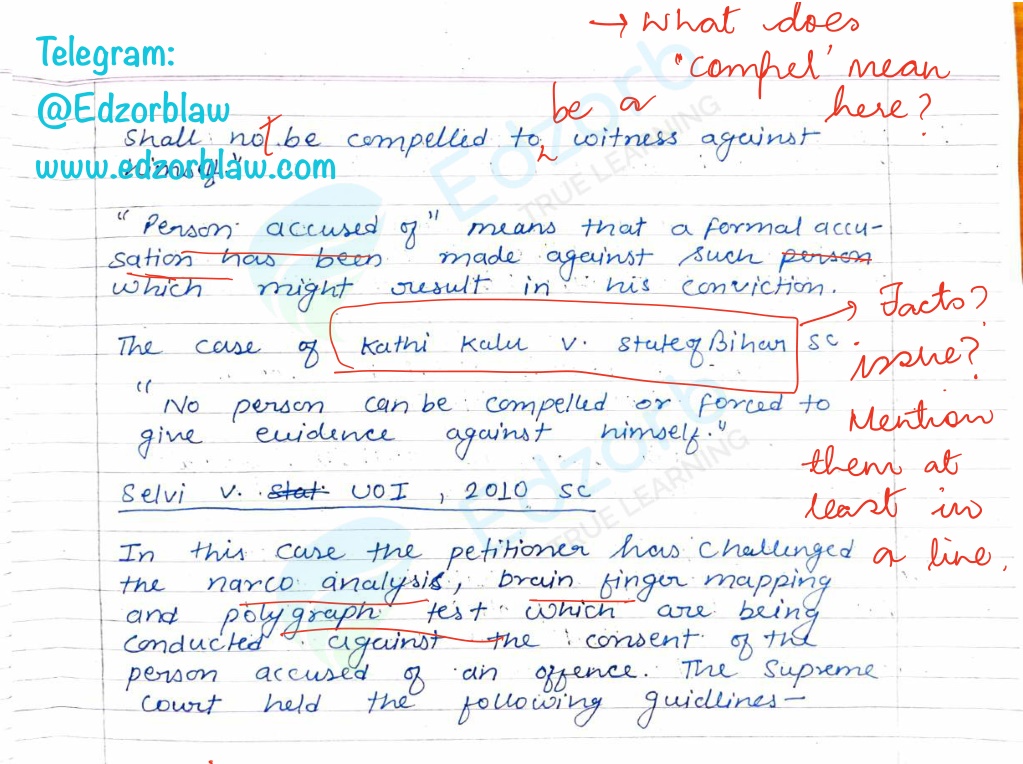 → What does
Telegram:
"compel' mean
@Edzorblaw
be a
here?
shall not be compelled to witness against
www.edzorblaw.com
himself"
"Person accused of" means that a formal accu-
sation has been made against such person
which might result in his conviction.
Facts?
The case of Kathi Kalu v. State of Bihar SC
issue?
"No person can be compelled or forced to
give evidence against himself."
Mention
them at
least in
a line.
Selvi v. Stat UOI, 2010 SC
In this case the petitioner has challenged
the narco analysis, brain finger mapping
and polygraph test which are being
conducted against the consent of the
person accused of an offence. The Supreme
Court held the following guidlines—
Edzorb
TRUE LEARNING
Edzorb
TRUE LEARNING